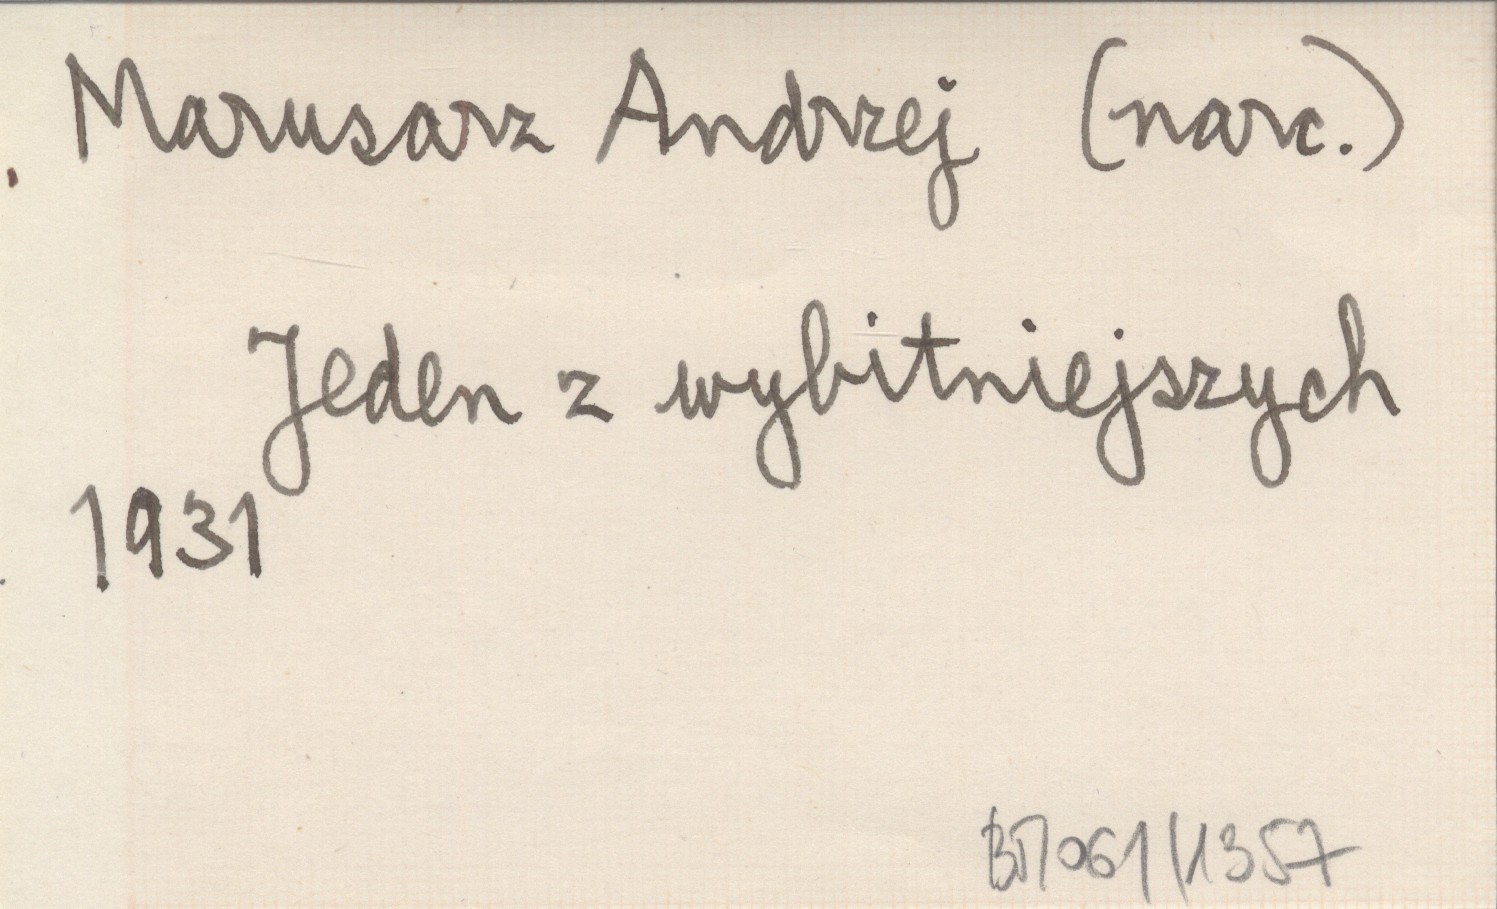 Marusarz Andrzej (narc.)
Jeden z wybitniejszych
1931
061/1357